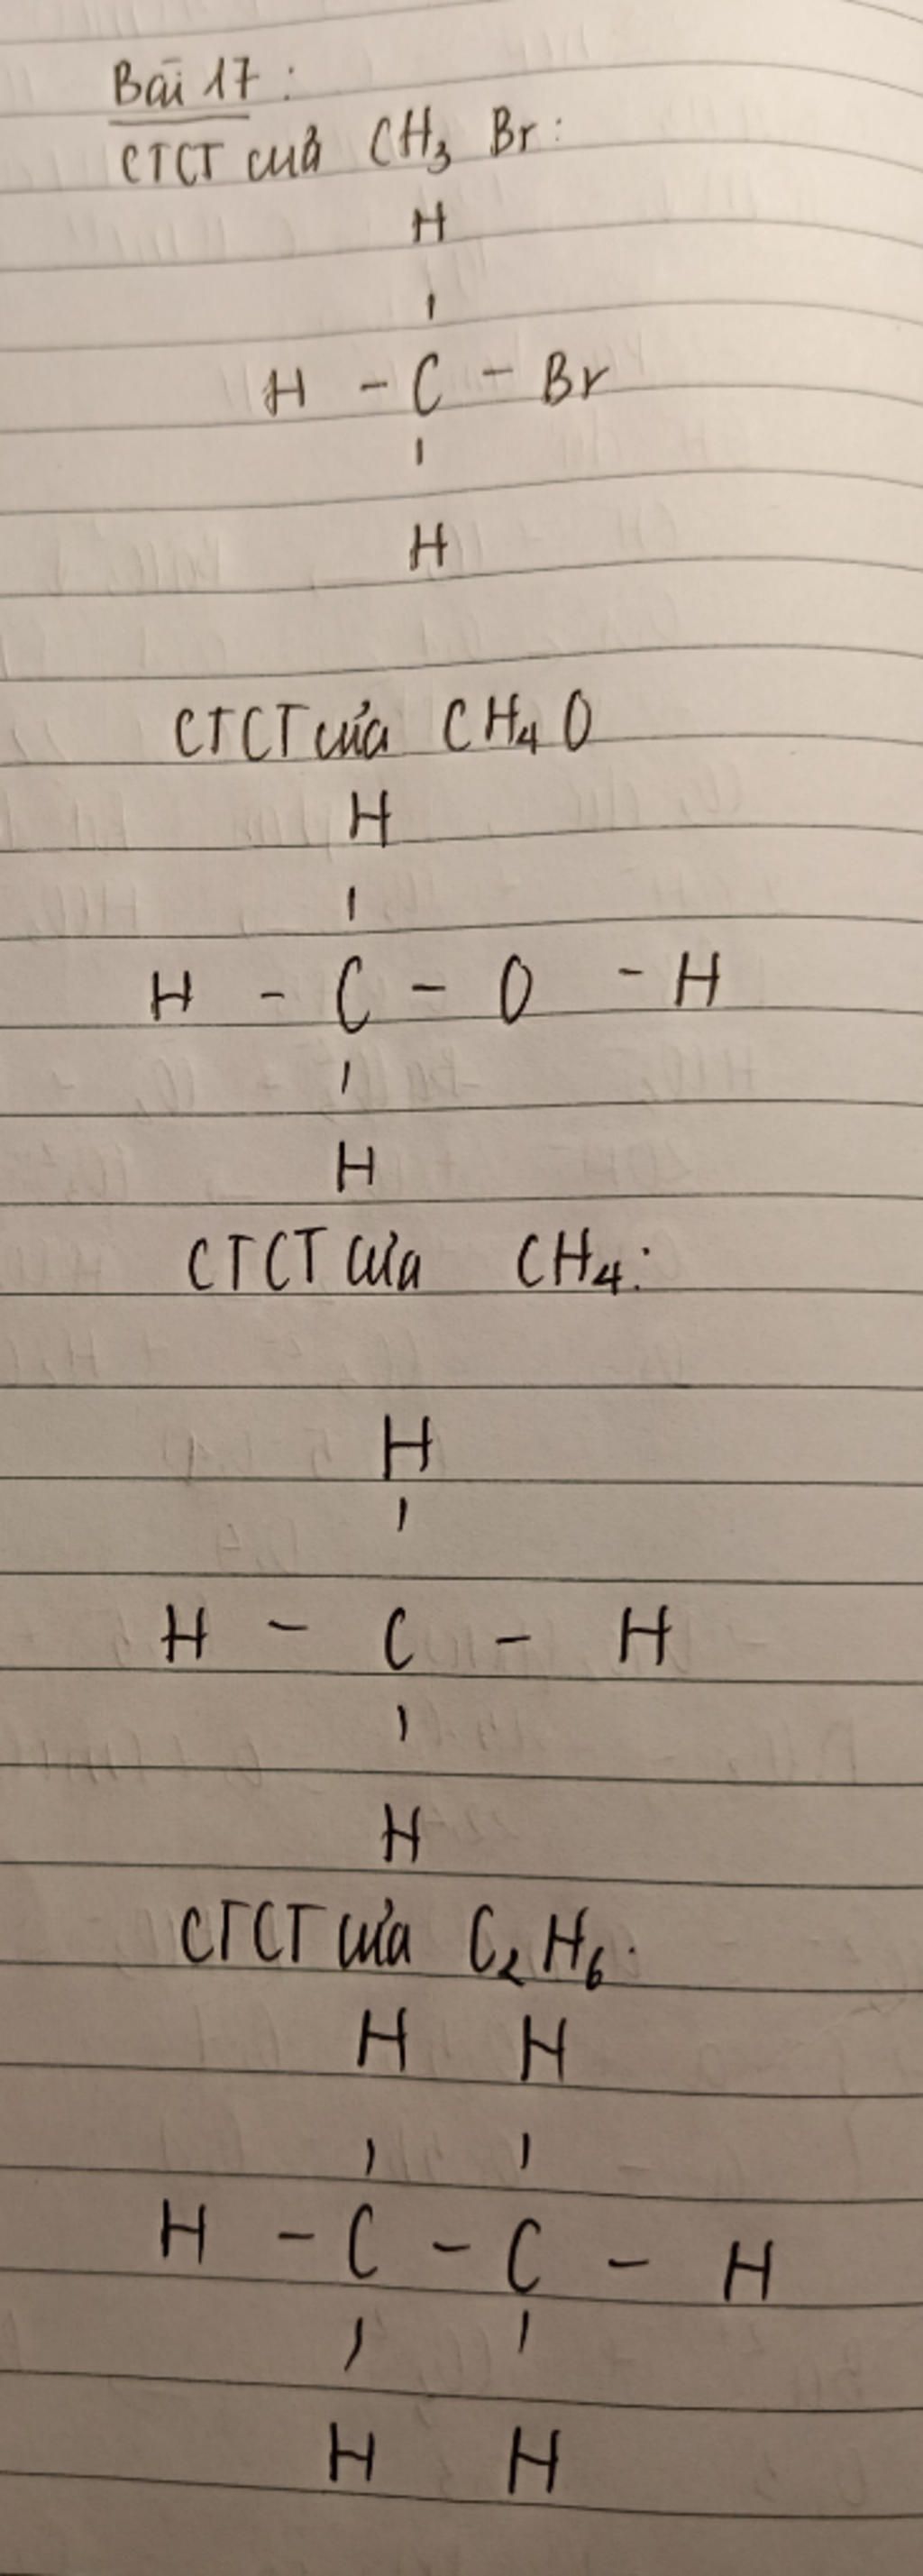 Bài 17:
CTCT của CH₃ Br:
H
|
H - C - Br
|
H
CTCT của CH₄ O
H
|
H - C - O - H
|
H
CTCT của CH₄:
H
|
H - C - H
|
H
CTCT của C₂ H₆.
H H
| |
H - C - C - H
| |
H H